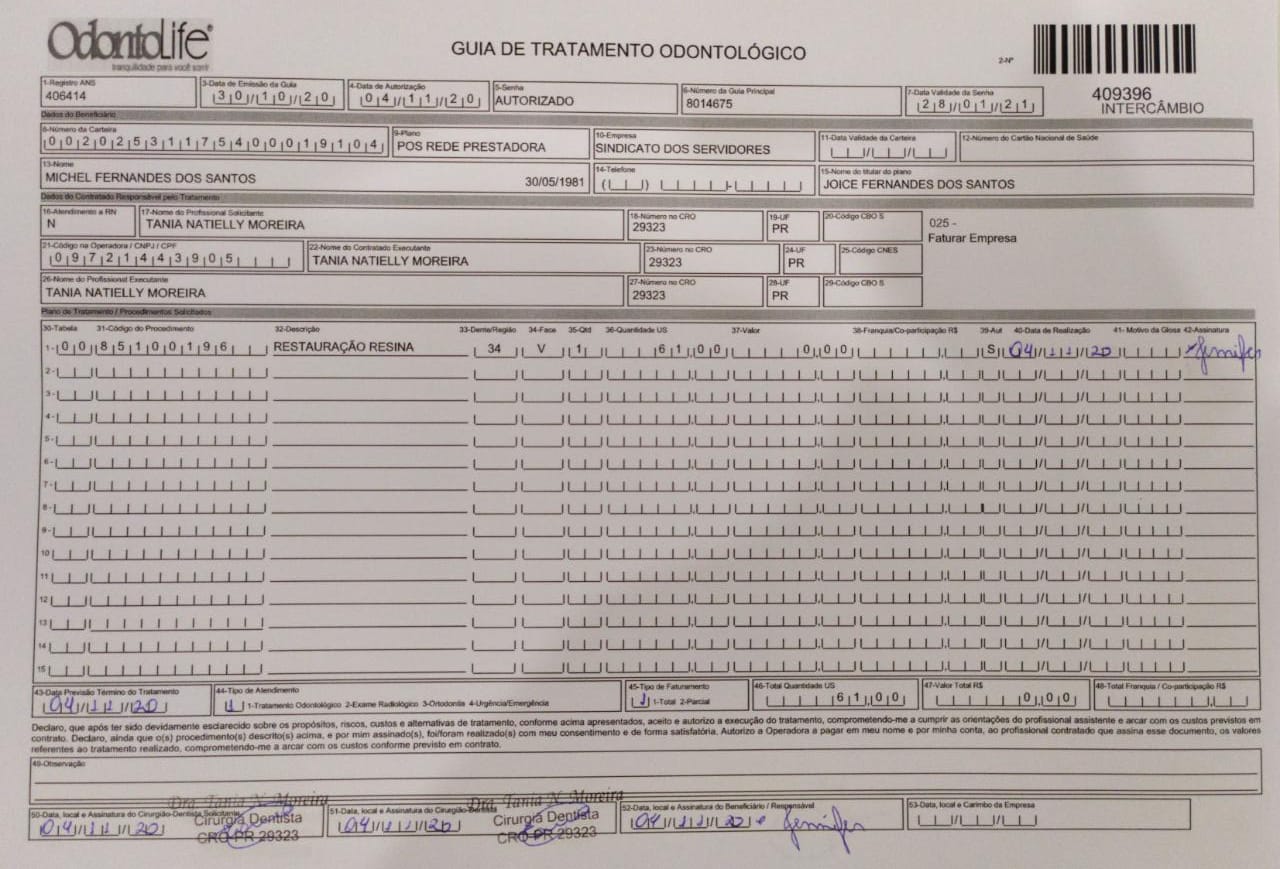 OdontoLife
tranquilidade para você sorrir
GUIA DE TRATAMENTO ODONTOLÓGICO
2-Nº
409396
INTERCÂMBIO
1-Registro ANS
406414
3-Data de Emissão da Guia
30/10/20
4-Data de Autorização
04/11/20
5-Senha
AUTORIZADO
6-Número da Guia Principal
8014675
7-Data Validade da Senha
28/01/21
Dados do Beneficiário
8-Número da Carteira
00202531175400019104
9-Plano
POS REDE PRESTADORA
10-Empresa
SINDICATO DOS SERVIDORES
11-Data Validade da Carteira
12-Número do Cartão Nacional de Saúde
13-Nome
MICHEL FERNANDES DOS SANTOS 30/05/1981
14-Telefone
15-Nome do titular do plano
JOICE FERNANDES DOS SANTOS
Dados do Contratado Responsável pelo Tratamento
16-Atendimento a RN
N
17-Nome do Profissional Solicitante
TANIA NATIELLY MOREIRA
18-Número no CRO
29323
19-UF
PR
20-Código CBO S
025 -
Faturar Empresa
21-Código na Operadora / CNPJ / CPF
09721443905
22-Nome do Contratado Executante
TANIA NATIELLY MOREIRA
23-Número no CRO
29323
24-UF
PR
25-Código CNES
26-Nome do Profissional Executante
TANIA NATIELLY MOREIRA
27-Número no CRO
29323
28-UF
PR
29-Código CBO S
Plano de Tratamento / Procedimentos Solicitados
30-Tabela 31-Código do Procedimento 32-Descrição 33-Dente/Região 34-Face 35-Qtd 36-Quantidade US 37-Valor 38-Franquia/Co-participação R$ 39-Aut 40-Data de Realização 41- Motivo da Glosa 42-Assinatura
1- 00 85100196 RESTAURAÇÃO RESINA 34 V 1 61,00 0,00 S 04/11/20 Jennifer
2-
3-
4-
5-
6-
7-
8-
9-
10
11
12
13
14
15
43-Data Previsão Término do Tratamento
04/11/20
44-Tipo de Atendimento
1 1-Tratamento Odontológico 2-Exame Radiológico 3-Ortodontia 4-Urgência/Emergência
45-Tipo de Faturamento
1 1-Total 2-Parcial
46-Total Quantidade US
61,00
47-Valor Total R$
0,00
48-Total Franquia / Co-participação R$
Declaro, que após ter sido devidamente esclarecido sobre os propósitos, riscos, custos e alternativas de tratamento, conforme acima apresentados, aceito e autorizo a execução do tratamento, comprometendo-me a cumprir as orientações do profissional assistente e arcar com os custos previstos em
contrato. Declaro, ainda que o(s) procedimento(s) descrito(s) acima, e por mim assinado(s), foi/foram realizado(s) com meu consentimento e de forma satisfatória. Autorizo a Operadora a pagar em meu nome e por minha conta, ao profissional contratado que assina esse documento, os valores
referentes ao tratamento realizado, comprometendo-me a arcar com os custos conforme previsto em contrato.
49-Observação
50-Data, local e Assinatura do Cirurgião-Dentista Solicitante
04/11/20
Dra. Tania N. Moreira
Cirurgiã Dentista
CRO-PR 29323
51-Data, local e Assinatura do Cirurgião-Dentista
04/11/20
Dra. Tania N. Moreira
Cirurgiã Dentista
CRO-PR 29323
52-Data, local e Assinatura do Beneficiário / Responsável
04/11/20 Jennifer
53-Data, local e Carimbo da Empresa